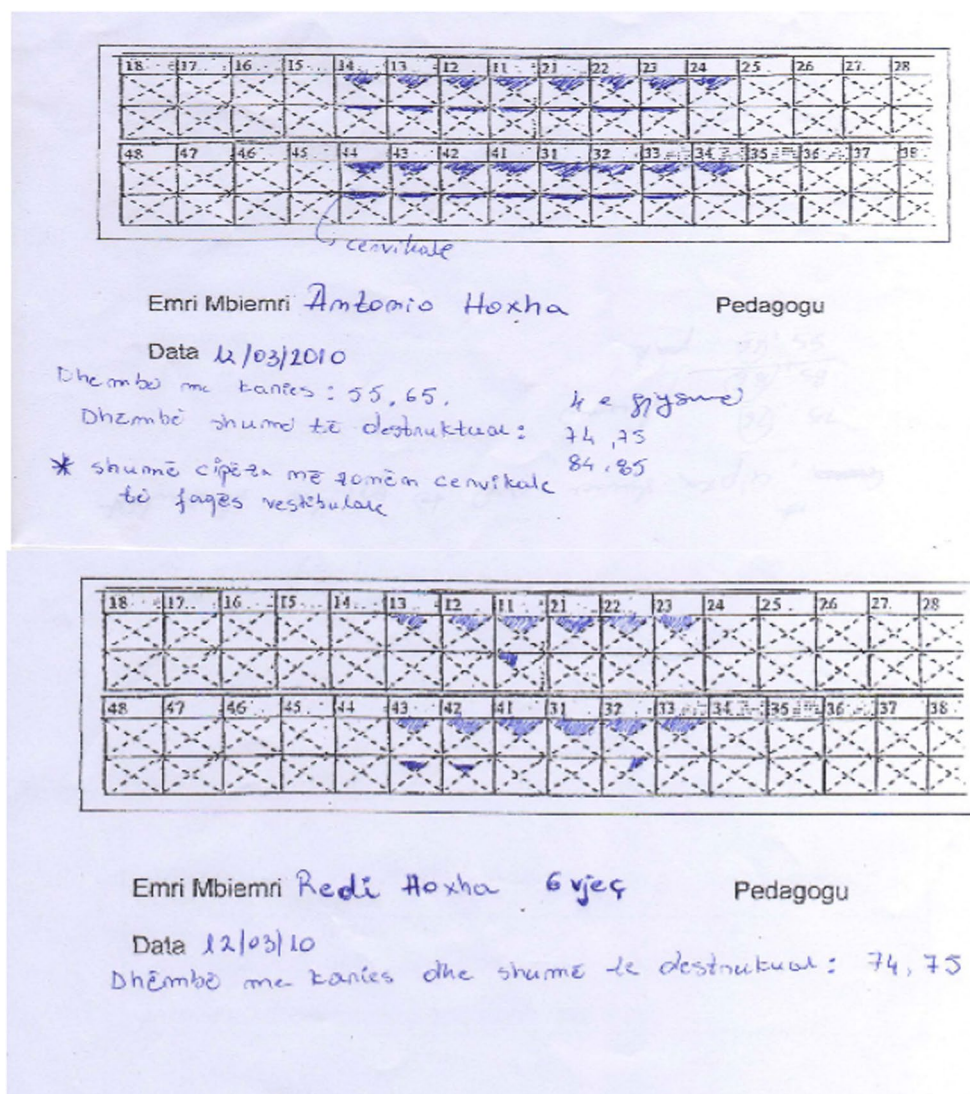 18 17 16 15 14 13 12 11 21 22 23 24 25 26 27 28
48 47 46 45 44 43 42 41 31 32 33 34 35 36 37 38
cervikale
Emri Mbiemri Antonio Hoxha Pedagogu
Data 12/03/2010
Dhembë me karies : 55, 65. 4 e gjysmë
Dhëmbë shumë të destruktuar : 74, 75
84, 85
* shumë cipëza me zonën cervikale
të faqës vestibulare
18 17 16 15 14 13 12 11 21 22 23 24 25 26 27 28
48 47 46 45 44 43 42 41 31 32 33 34 35 36 37 38
Emri Mbiemri Redi Hoxha 6 vjeç Pedagogu
Data 12/03/10
Dhëmbë me karies dhe shumë te destruktuar : 74, 75